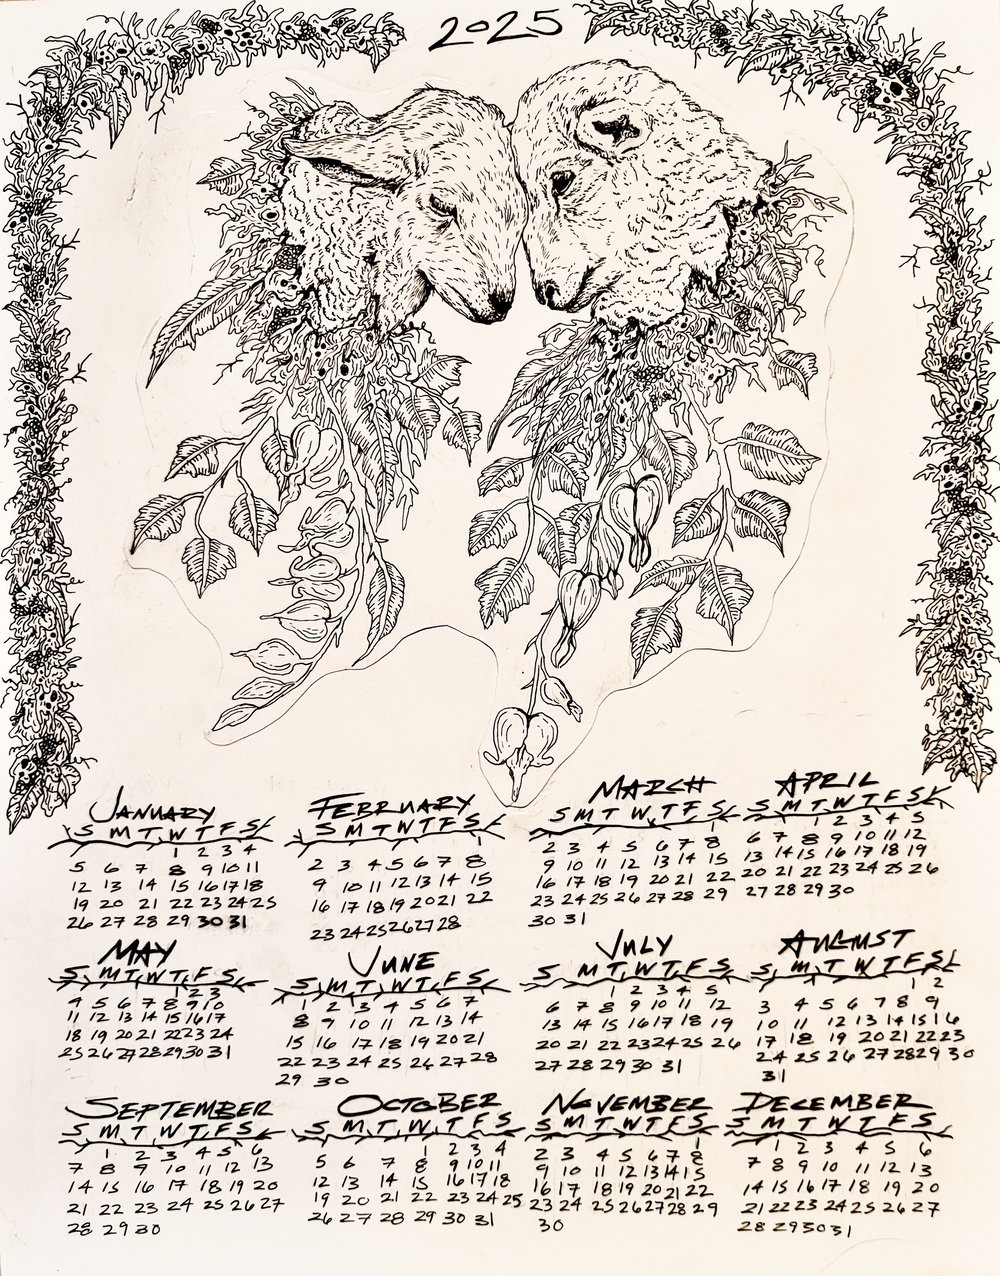 2025
JANUARY
S M T W T F S
1 2 3 4
5 6 7 8 9 10 11
12 13 14 15 16 17 18
19 20 21 22 23 24 25
26 27 28 29 30 31
FEBRUARY
S M T W T F S
1
2 3 4 5 6 7 8
9 10 11 12 13 14 15
16 17 18 19 20 21 22
23 24 25 26 27 28
MARCH
S M T W T F S
1
2 3 4 5 6 7 8
9 10 11 12 13 14 15
16 17 18 19 20 21 22
23 24 25 26 27 28 29
30 31
APRIL
S M T W T F S
1 2 3 4 5
6 7 8 9 10 11 12
13 14 15 16 17 18 19
20 21 22 23 24 25 26
27 28 29 30
MAY
S M T W T F S
1 2 3
4 5 6 7 8 9 10
11 12 13 14 15 16 17
18 19 20 21 22 23 24
25 26 27 28 29 30 31
JUNE
S M T W T F S
1 2 3 4 5 6 7
8 9 10 11 12 13 14
15 16 17 18 19 20 21
22 23 24 25 26 27 28
29 30
JULY
S M T W T F S
1 2 3 4 5
6 7 8 9 10 11 12
13 14 15 16 17 18 19
20 21 22 23 24 25 26
27 28 29 30 31
AUGUST
S M T W T F S
1 2
3 4 5 6 7 8 9
10 11 12 13 14 15 16
17 18 19 20 21 22 23
24 25 26 27 28 29 30
31
SEPTEMBER
S M T W T F S
1 2 3 4 5 6
7 8 9 10 11 12 13
14 15 16 17 18 19 20
21 22 23 24 25 26 27
28 29 30
OCTOBER
S M T W T F S
1 2 3 4
5 6 7 8 9 10 11
12 13 14 15 16 17 18
19 20 21 22 23 24 25
26 27 28 29 30 31
NOVEMBER
S M T W T F S
1
2 3 4 5 6 7 8
9 10 11 12 13 14 15
16 17 18 19 20 21 22
23 24 25 26 27 28 29
30
DECEMBER
S M T W T F S
1 2 3 4 5 6
7 8 9 10 11 12 13
14 15 16 17 18 19 20
21 22 23 24 25 26 27
28 29 30 31